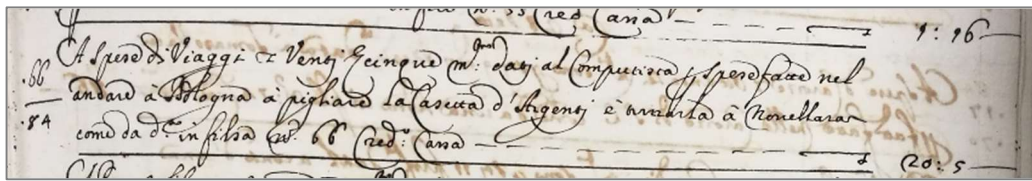 in filza N.° 55 Cred.r Cassa 1: 16
.66 A spese di Viaggi £ Venti e cinque m.ta dati al Computista p spese fatte nel
.84 andare à Bologna à pigliare la Casetta d'Argenti è portarla à Novellara
come da d.to in filza N.° 66 Cred.r Cassa 20: 5